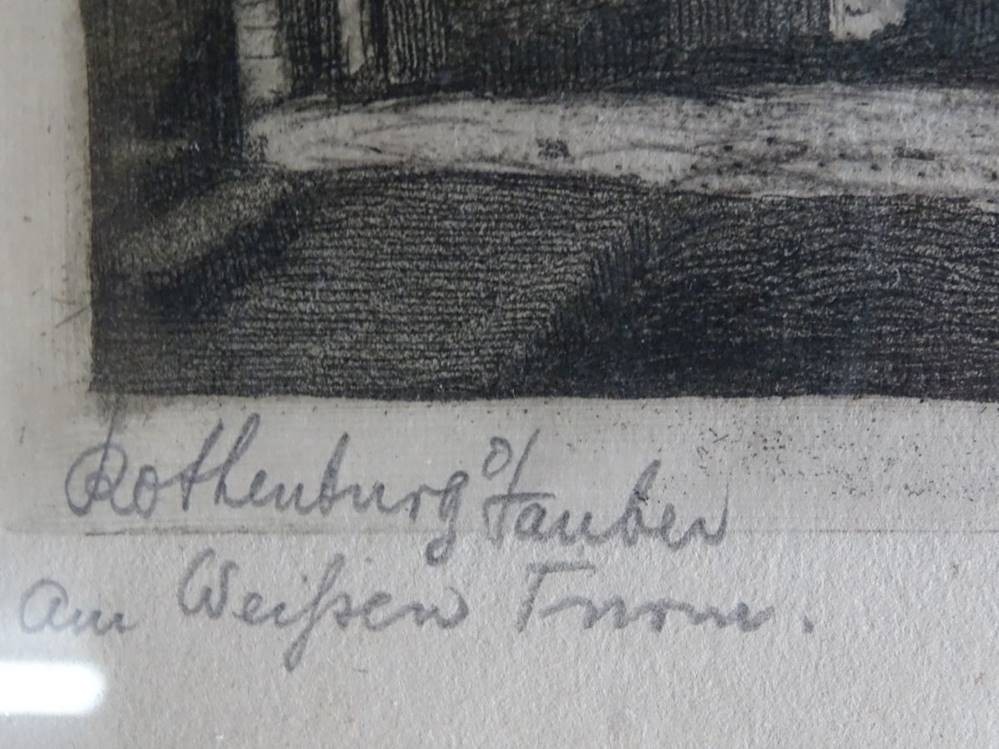 Rothenburg o/Tauber
Am Weißen Turm.